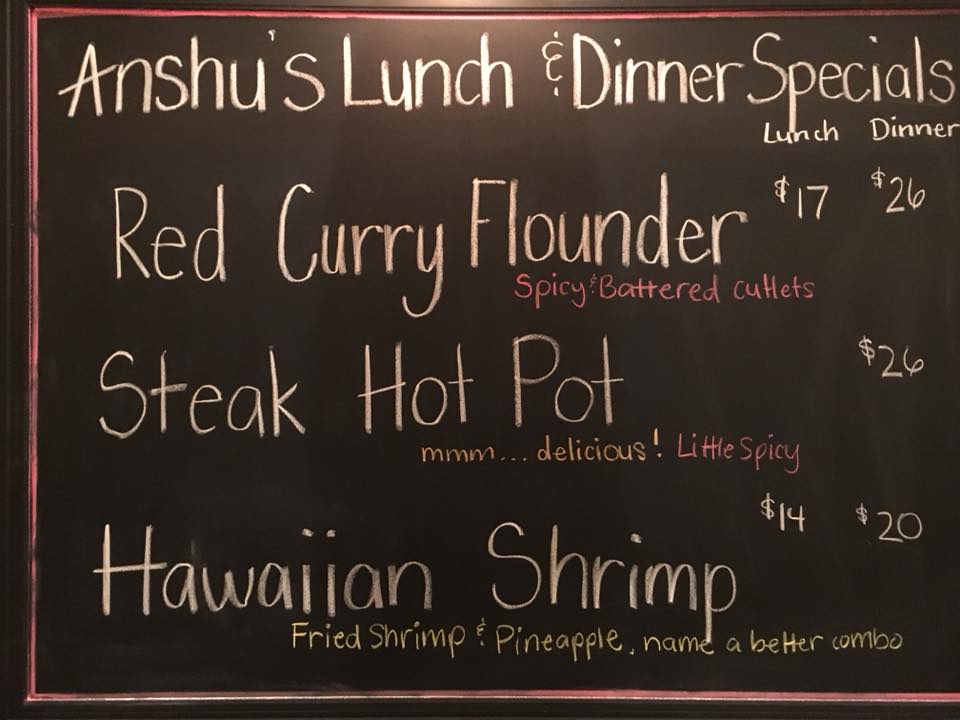 Anshu's Lunch & Dinner Specials
Lunch Dinner
Red Curry Flounder $17 $26
Spicy & Battered cutlets
Steak Hot Pot $26
mmm... delicious! Little Spicy
$14 $20
Hawaiian Shrimp
Fried Shrimp & Pineapple, name a better combo